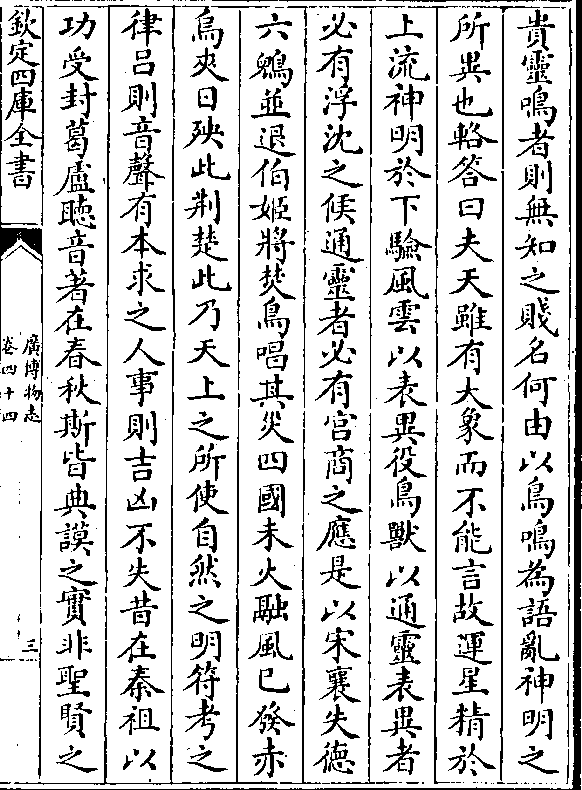 貴靈鳴者則無知之賤名何由以鳥鳴為語亂神明之
所異也輅答曰夫天雖有大象而不能言故運星精於
上流神明於下驗風雲以表異役鳥獸以通靈表異者
必有浮沈之候通靈者必有宮商之應是以宋襄失德
六鶂並退伯姬將焚鳥唱其災四國未火融風已發赤
鳥夾日殃此荆楚此乃天上之所使自然之明符考之
律吕則音聲有本求之人事則吉凶不失昔在秦祖以
功受封葛盧聴音著在春秋斯皆典謨之實非聖賢之
欽定四庫全書
廣博物志
卷四十四
三